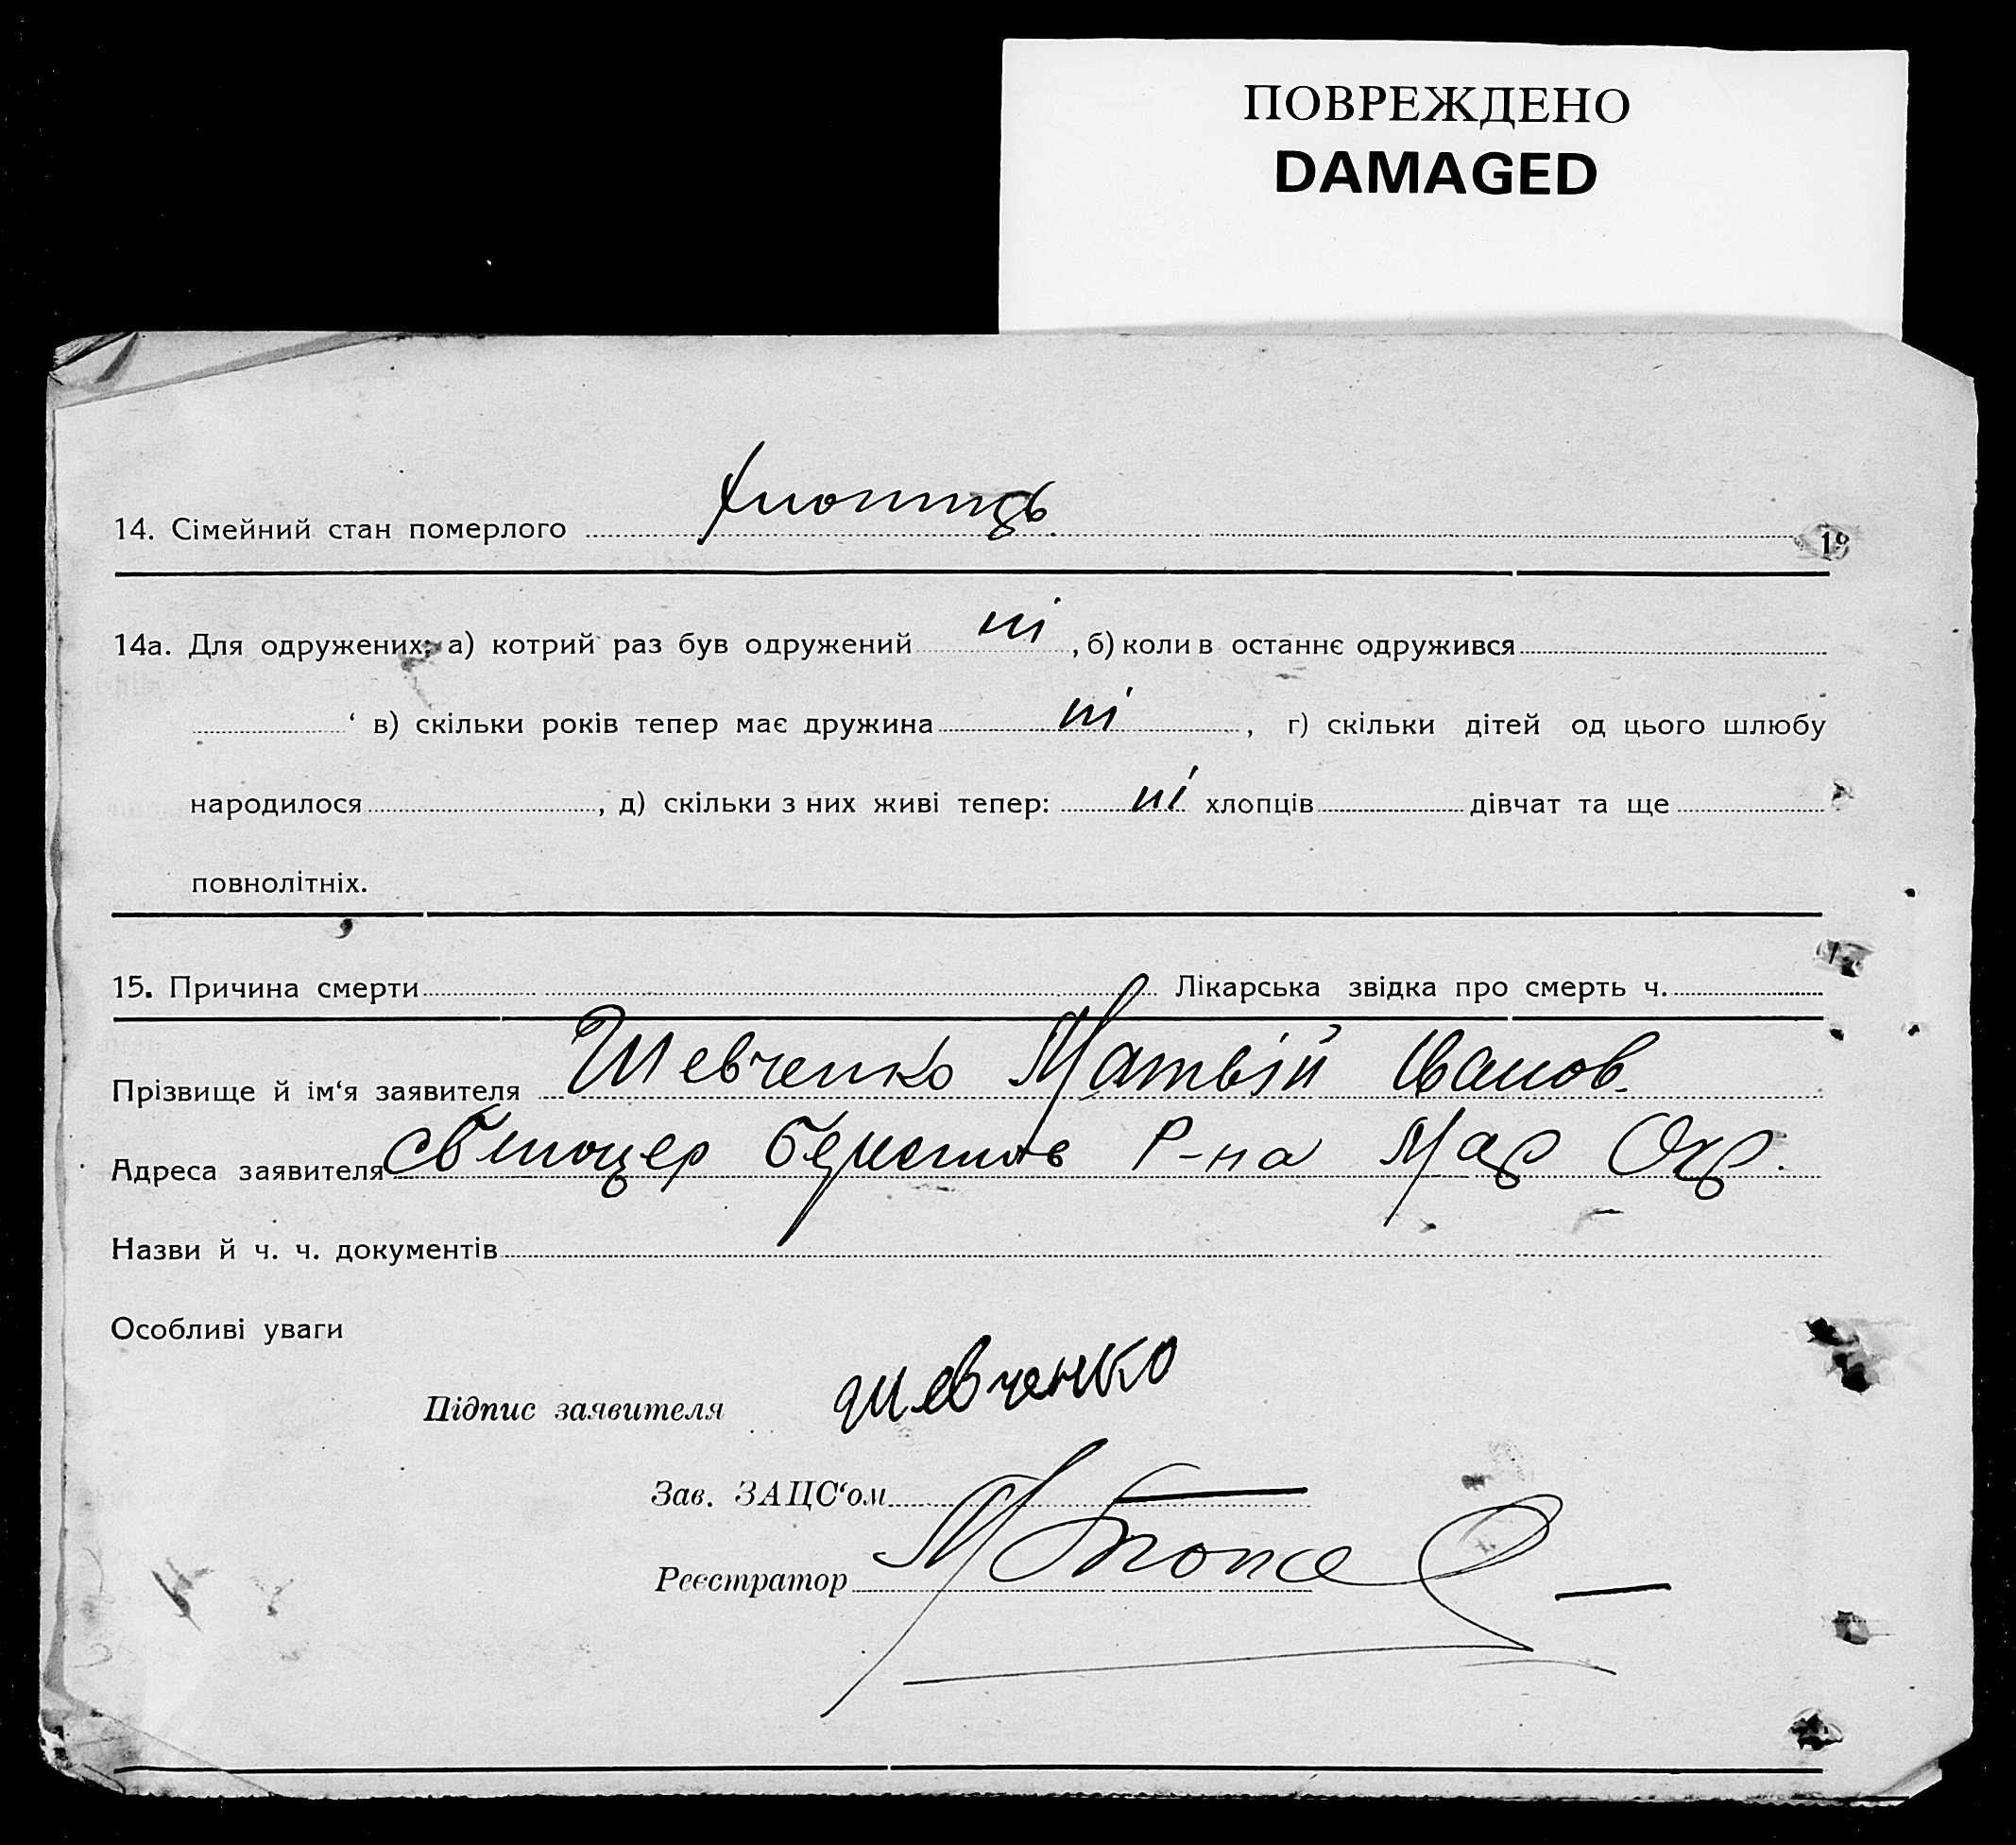 ПОВРЕЖДЕНО
DAMAGED
14. Сімейний стан померлого хлопиць
14а. Для одружених: а) котрий раз був одружений ні, б) коли в останнє одружився
в) скільки років тепер має дружина ні, г) скільки дітей од цього шлюбу
народилося, д) скільки з них живі тепер: ні хлопців дівчат та ще
повнолітніх.
15. Причина смерти Лікарська звідка про смерть ч.
Прізвище й ім‘я заявителя Шевченко Матвій Иванов.
Адреса заявителя Р-на Мар Окр.
Назви й ч. ч. документів
Особливі уваги
Підпис заявителя Шевченко
Зав. ЗАЦС‘ом
Реєстратор